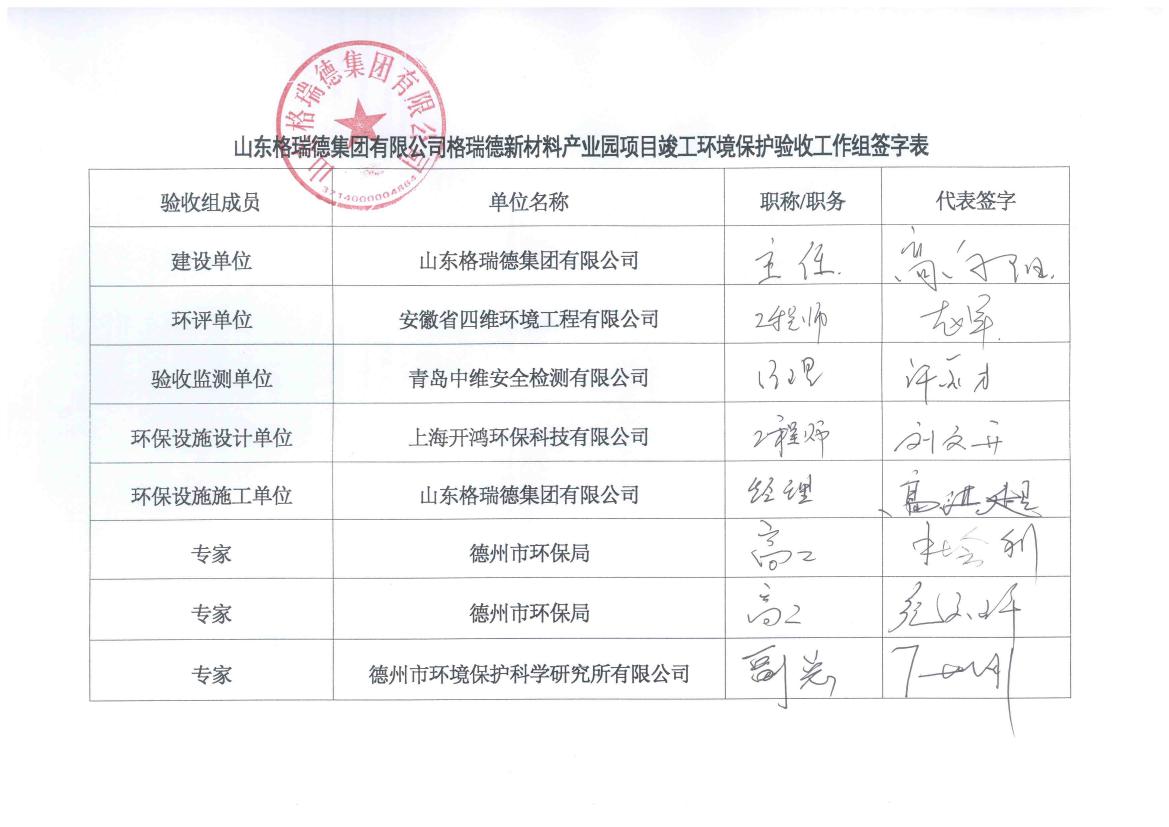 山东格瑞德集团有限公司
3714000004864
山东格瑞德集团有限公司格瑞德新材料产业园项目竣工环境保护验收工作组签字表
验收组成员 单位名称 职称/职务 代表签字
建设单位 山东格瑞德集团有限公司 主任
环评单位 安徽省四维环境工程有限公司 工程师 赵军
验收监测单位 青岛中维安全检测有限公司 经理
环保设施设计单位 上海开鸿环保科技有限公司 工程师 刘文开
环保设施施工单位 山东格瑞德集团有限公司 经理
专家 德州市环保局 高工
专家 德州市环保局 高工
专家 德州市环境保护科学研究所有限公司 副总